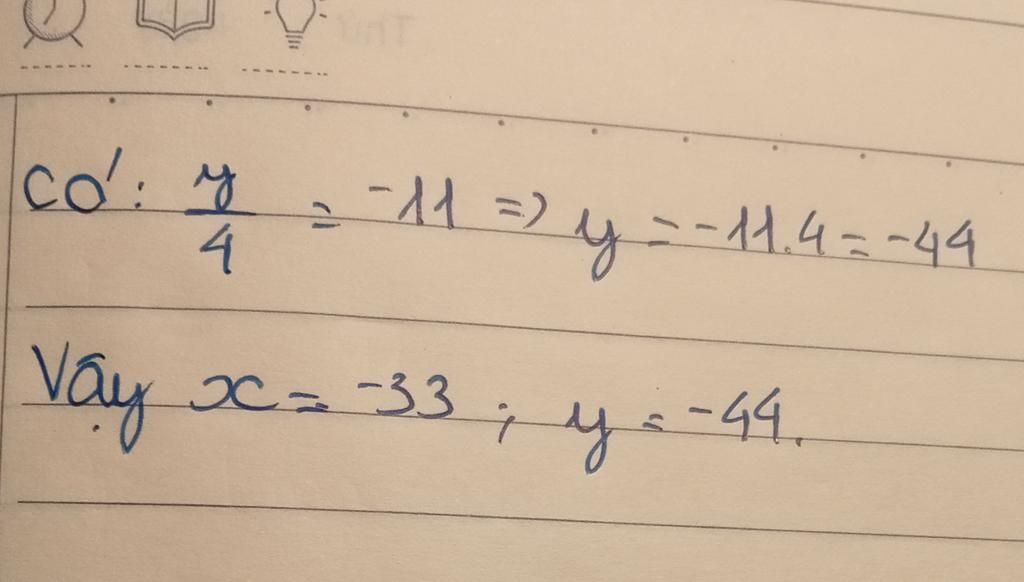 Có: y/4 = -11 => y = -11.4 = -44
Vậy x = -33 ; y = -44.